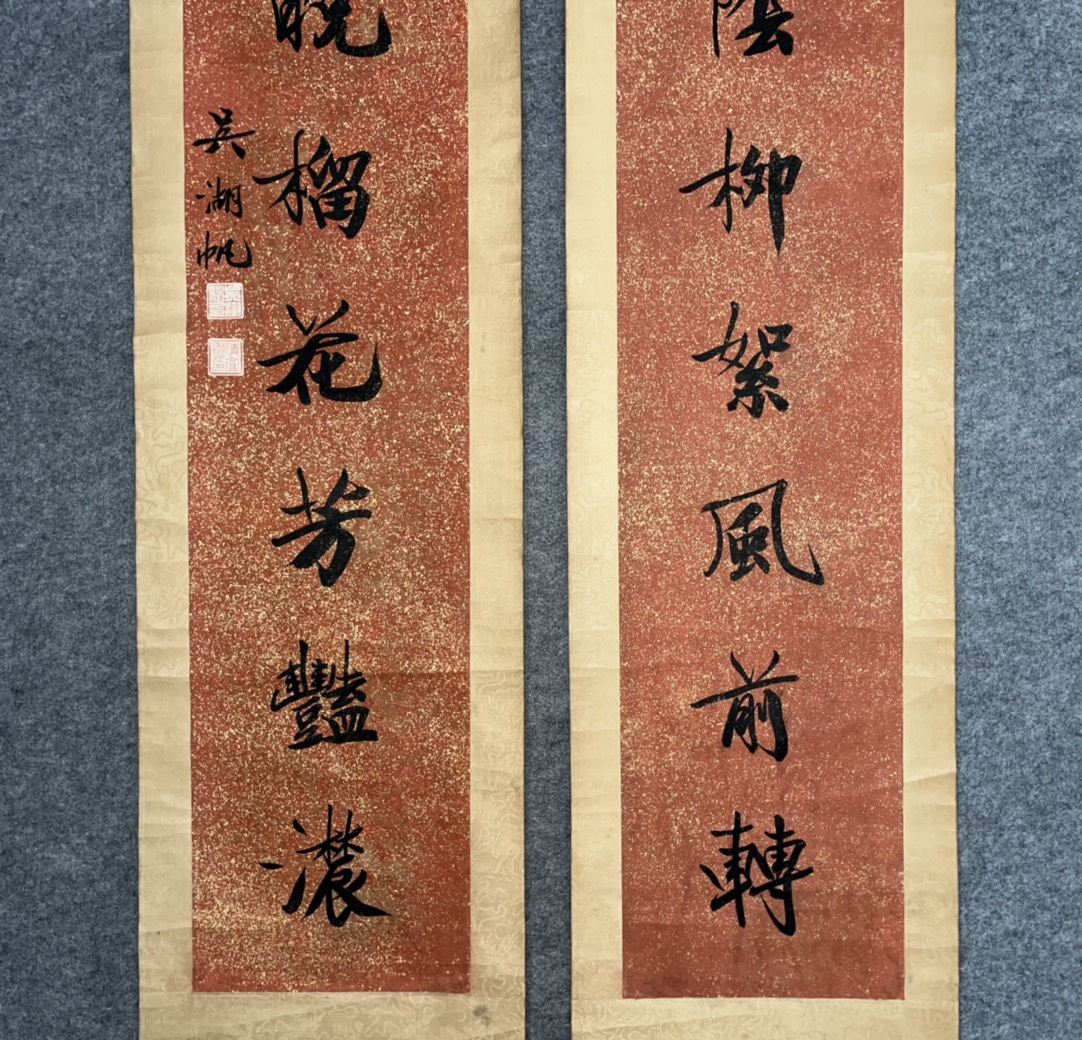 陰柳絮風前轉
晚榴花芳豔濃
吳湖帆